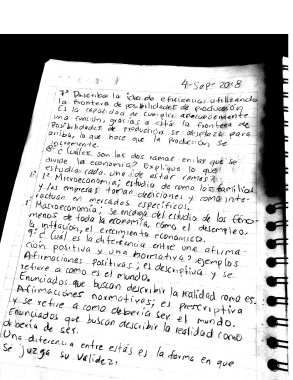 4-Sep-2018
7º Describa la idea de eficiencia utilizando
la frontera de posibilidades de producción
Es la capacidad de cumplir adecuadamente
una función, gracias a está la frontera de
Posibilidades de producción se desplaza para
arriba, lo que hace que la producción, se
incremente.
¿Cuáles son las dos ramas en las que se
divide la economía? Explique lo que
estudia cada una de estas ramas?
1º Microeconomía; estudio de como las familias
y las empresas toman decisiones y como inte-
ractuan en mercados específicos.
Macroeconomía; se encarga del estudio de los fenó-
menos de toda la economía, cómo el desempleo,
la inflación, el crecimiento económico.
9º ¿Cuál es la diferencia entre una afirma-
ción positiva y una normativa? ejemplos
Afirmaciones positivas; es descriptiva y se
refiere a como es el mundo.
Enunciados que buscan describir la realidad como es.
Afirmaciones normativas; es prescriptiva
y se refire a como debería ser el mundo.
Enunciados que buscan describir la realidad como
debería de ser.
Una diferencia entre estás es la forma en que
se juzga su validez.